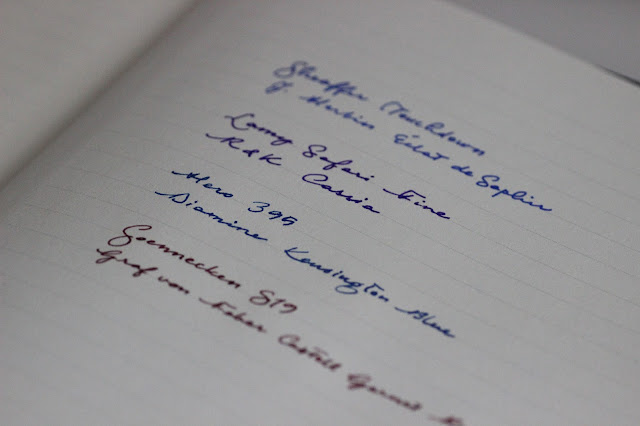 Sheaffer Touchdown
J. Herbin Éclat de Saphir
Lamy Safari Fine
R&K Cassia
Hero 395
Diamine Kensington Blue
Soennecken S19
Graf von Faber Castell Garnet